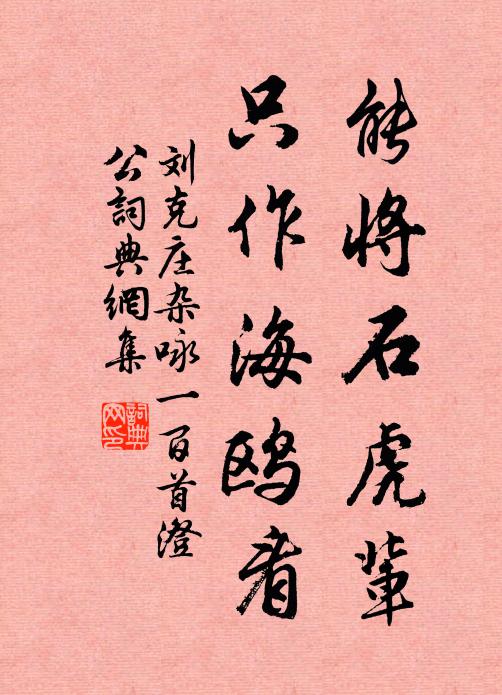 能将石虎輩
只作海鸥看
刘克庄杂咏一百首澄
公詞典網集
詞典
网印